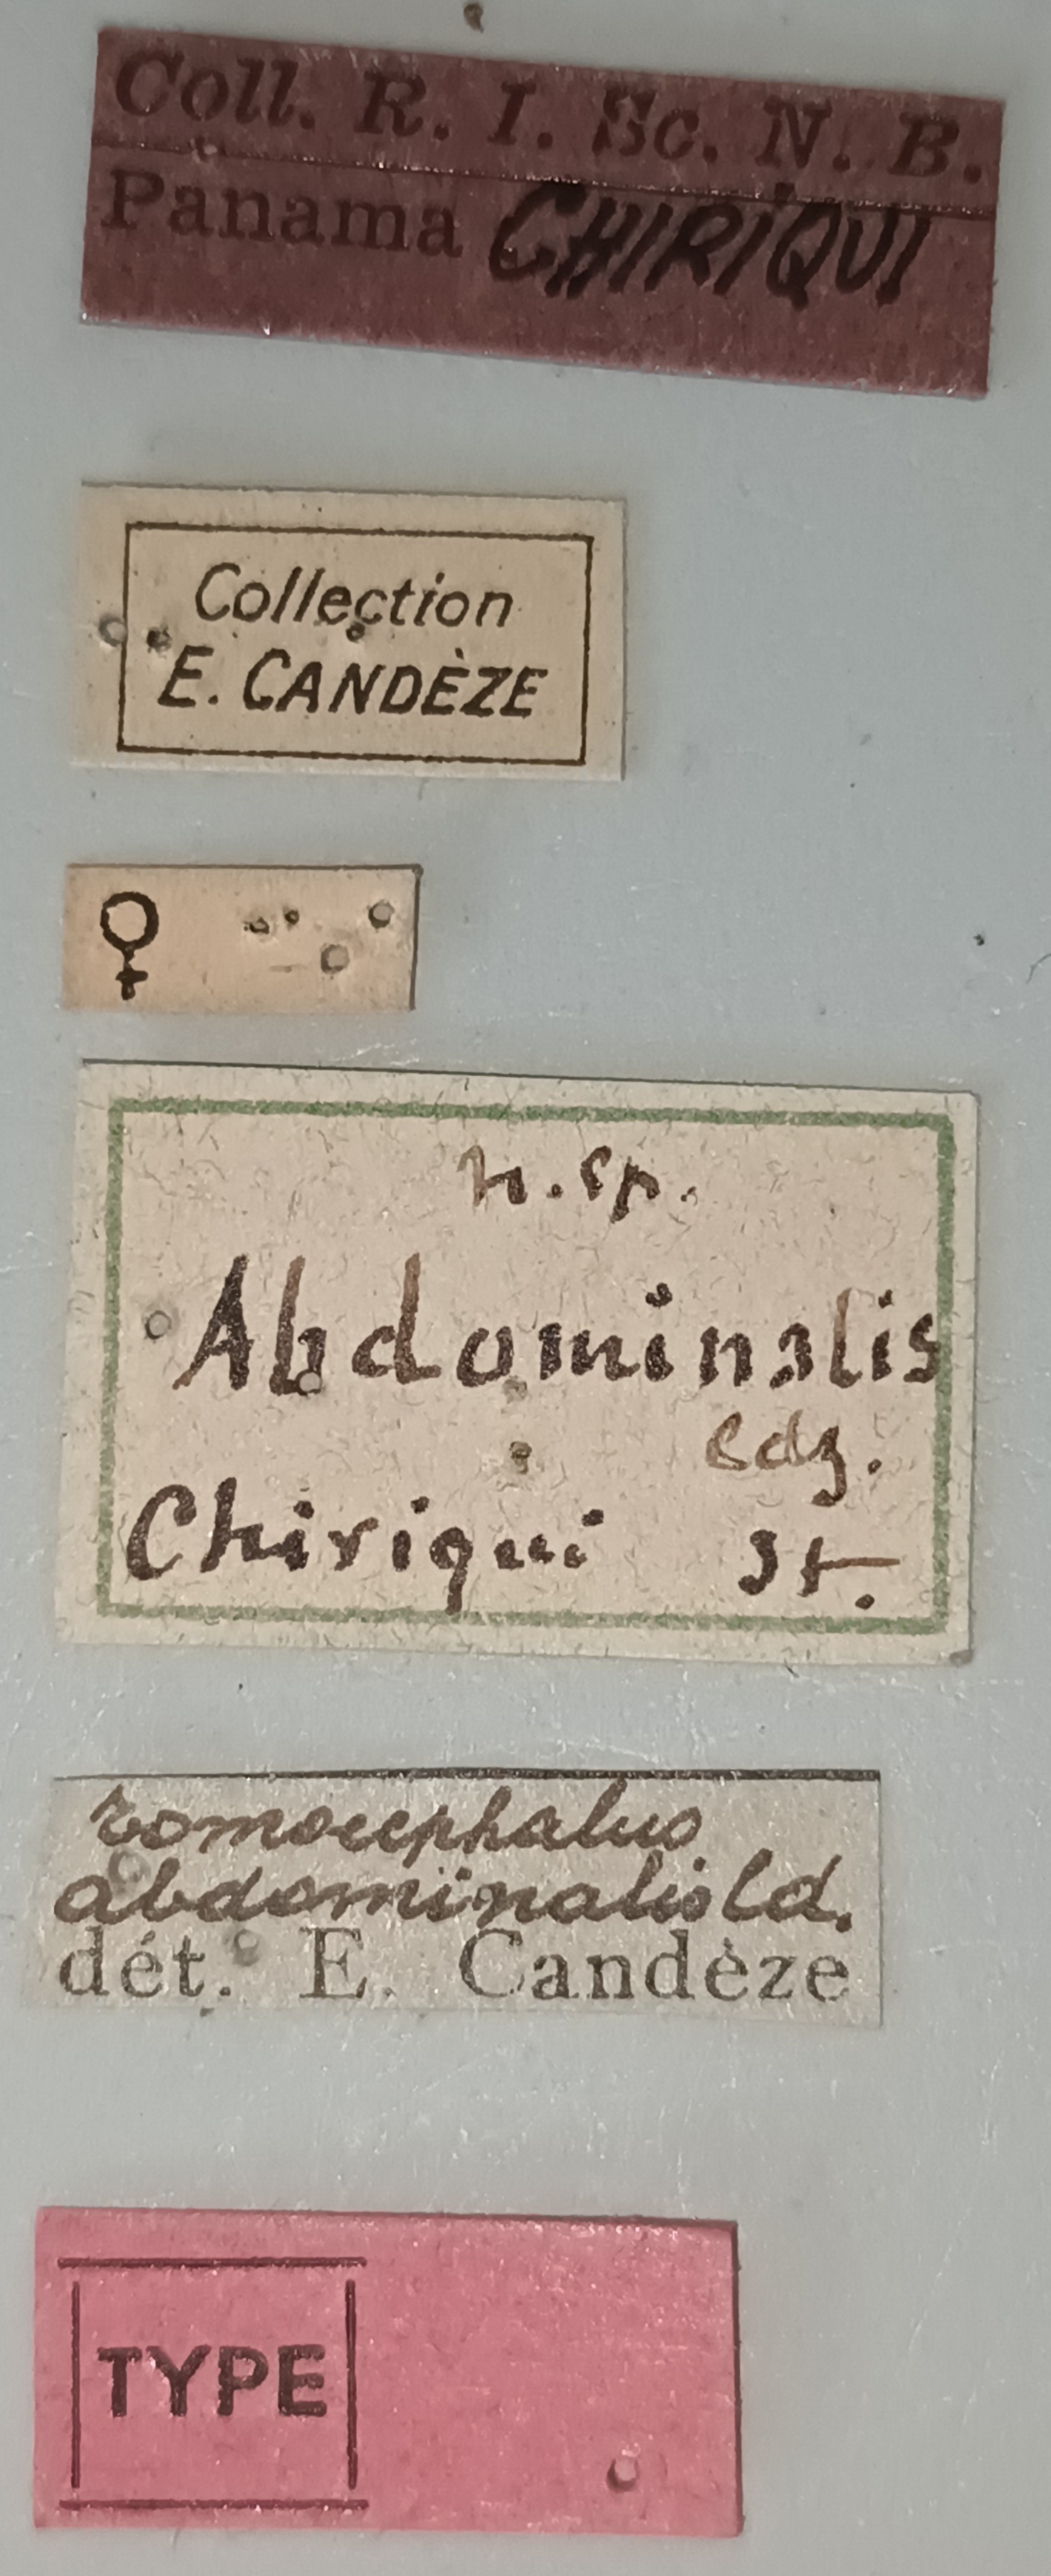 Coll. R. I. Sc. N. B.
Panama CHIRIQUI
Collection
E. CANDÈZE
♀
n. sp.
Abdominalis
Cdz.
Chiriqui St.
abdominalis Cd.
dét. E. Candèze
TYPE